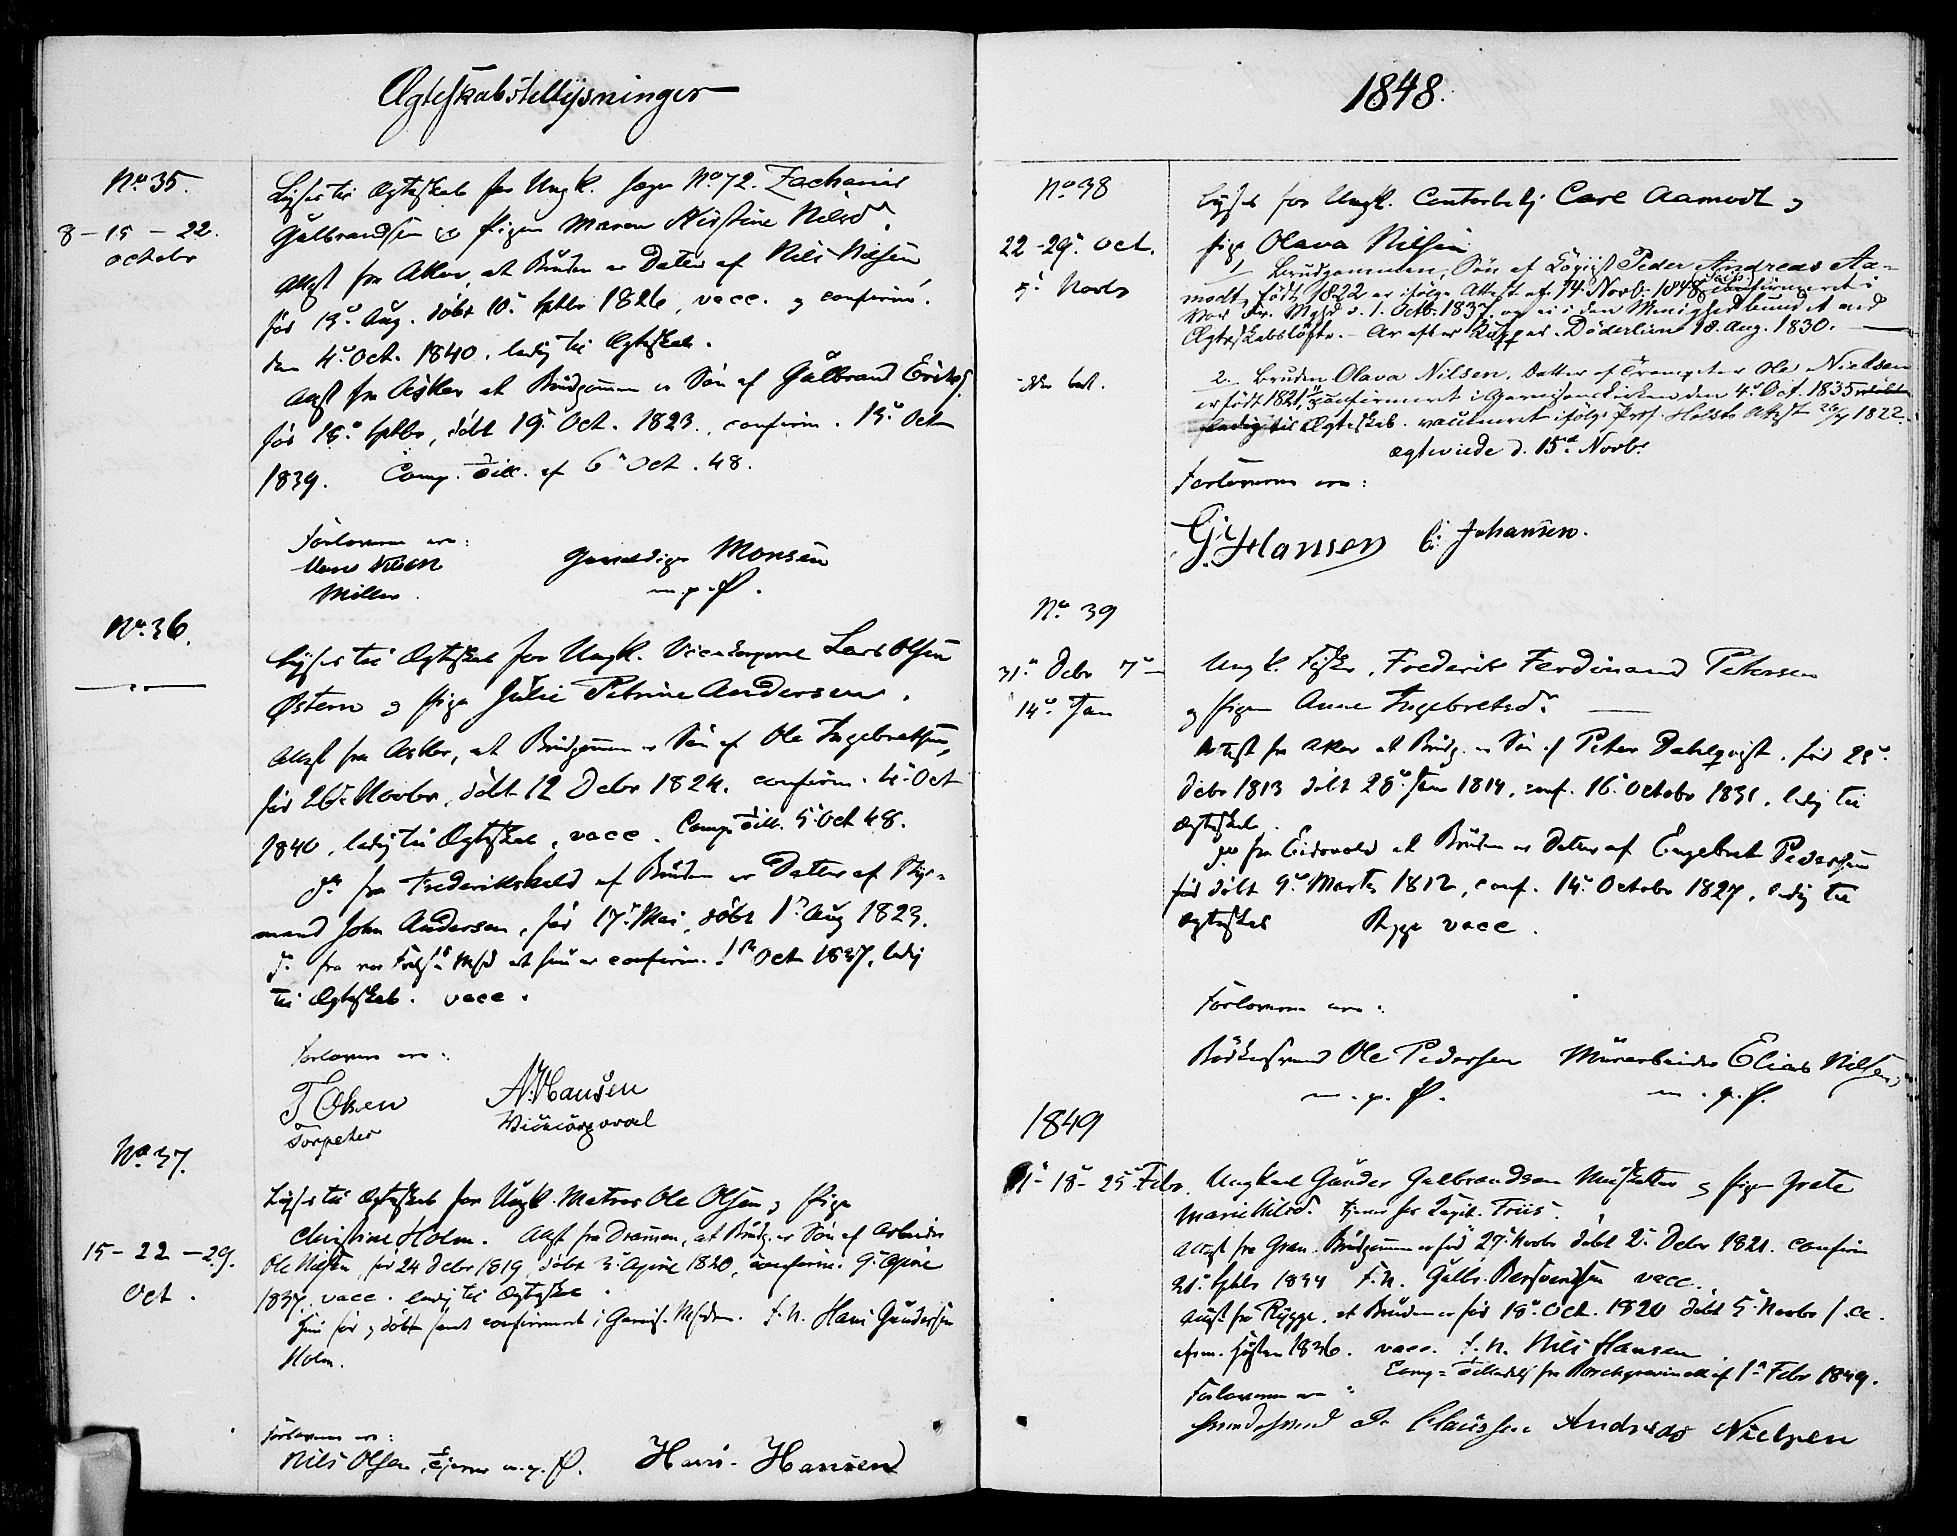 Ægteskabstillysninger
No 35.
8 - 15 - 22.
octobr
Lyses til Ægteskab for Ungk. Jæger No 72. Zacharias
Gulbrandsen og Pigen Maren Kirstine Nilsd.
Attest fra Aker, at Bruden er Datter af Nils Nilsen,
før 13 Aug. døbt 10 Septbr 1826, vacc. og confirm.
den 4 Oct. 1840. ledig til Ægteskab.
Attest fra Asker at Brudgommen er Søn af Gulbrand Ericks.
før 18 Septbr, døbt 19 Oct. 1823, confirm. 13 Oct
1839. Comp. Till. af 6 Oct. 48.
Forloverne ere:
Møller.
Monsen
m.p.P.
No. 36.
Lyses til Ægteskab for Ungk. Vicecorporal Lars Olsen
Østern og Pige Julie Petrine Andersen.
Attest fra Asker, at Brudgommen er Søn af Ole Ingebretsen,
før 26 Novbr, døbt 12 Decbr 1824. confirm. 4 Oct
1840, ledig til Ægteskab, vacc. Comp. Till. 5 Oct 48.
Do fra Frederikshald at Bruden er Datter af Styr-
mand John Andersen, før 17 Mai, døbt 1 Aug 1823.
Do fra vor at hun er confirm. 1 Oct 1837, ledig
til Ægteskab. vacc.
Forloverne ere:
T Olsen
N. Hansen
Vicecorporal
No 37.
15 - 22 - 29.
Oct.
Lyses til Ægteskab for Ungk. Matros Ole Olsen og Pige
Christine Holm. Attest fra Drammen, at Brudg. er Søn af Arbeider
Ole Nilsen, før 24 Decbr 1819, døbt 3 April 1820, confirm. 9 April
1837. vacc. ledig til Ægteskab.
Hun før og døbt samt confirmeret i Garnis. F. N. Hans Gundersen
Holm.
Forloverne ere:
Nils Olsen, m.p.P. Hans Hansen
1848.
No 38
22 - 29 Oct.
5 Novbr
Lyses for Ungk. Contorbetj Carl Aamodt og
Pige Olava Nilsen
1, Brudgommen, Søn af Peder Andreas Aa-
modt, født 1822 er ifølge Attest af 14 Novb. 1848 confirmeret i
Vor Fr. Mghd d. 1. Octb. 1837, og ei i den Menighed bundet ved
Ægteskabsløfte. - Ar efter Kopper. Döderlein 18. Aug. 1830.
2. Bruden Olava Nilsen, Datter af Trompeter Ole Nielsen
er født 1821, confirmeret i Garnisonskirken den 4 Oct. 1835
ledig til Ægteskab. vaccineret ifølge Prof. Holsts Attest 1822.
ægteviede d. 15 Novb.
Forloverne ere:
G. Hansen C. Johansen.
No. 39
31 Decbr 7 -
14 Jan
Ungk. Fisker, Frederik Ferdinand Petersen
og Pigen Anne Ingebretsd.
Attest fra Aker at Brudg. er Søn af Peter Dahlqvist, før 25
Decbr 1813 døbt 28 Jan 1814, conf. 16 Octobr 1831, ledig til
Ægteskab.
Do fra Eidsvold at Bruden er Datter af Engebret Pedersen
født døbt 9 Marts 1812, conf. 14 Octobr 1827, ledig til
Ægteskab vacc.
Forloverne ere:
Bødkersvend Ole Pedersen Murarbeider Elias Nilsen
m.p.P. m.p.P.
1849
11 - 18 - 25 Febr.
Ungkarl Gunder Gulbrandsen Musketeer og Pigen Grete
Marie Nilsd. tjener hos Friis.
Attest fra Gran. Brudgommen er før 27 Novbr døbt 2 Decbr 1821. confirm
21 Septbr 1834 F. N. Gulbr. Bersvendsen vacc.
Attest fra Rygge, at Bruden er før 18 Oct. 1820 døbt 5 Novbr s. A.
Høsten 1836. vacc. F. N. Nils Hansen
Comp. af 1 Febr 1849.
Forloverne ere:
Claussen Andreas Nielsen